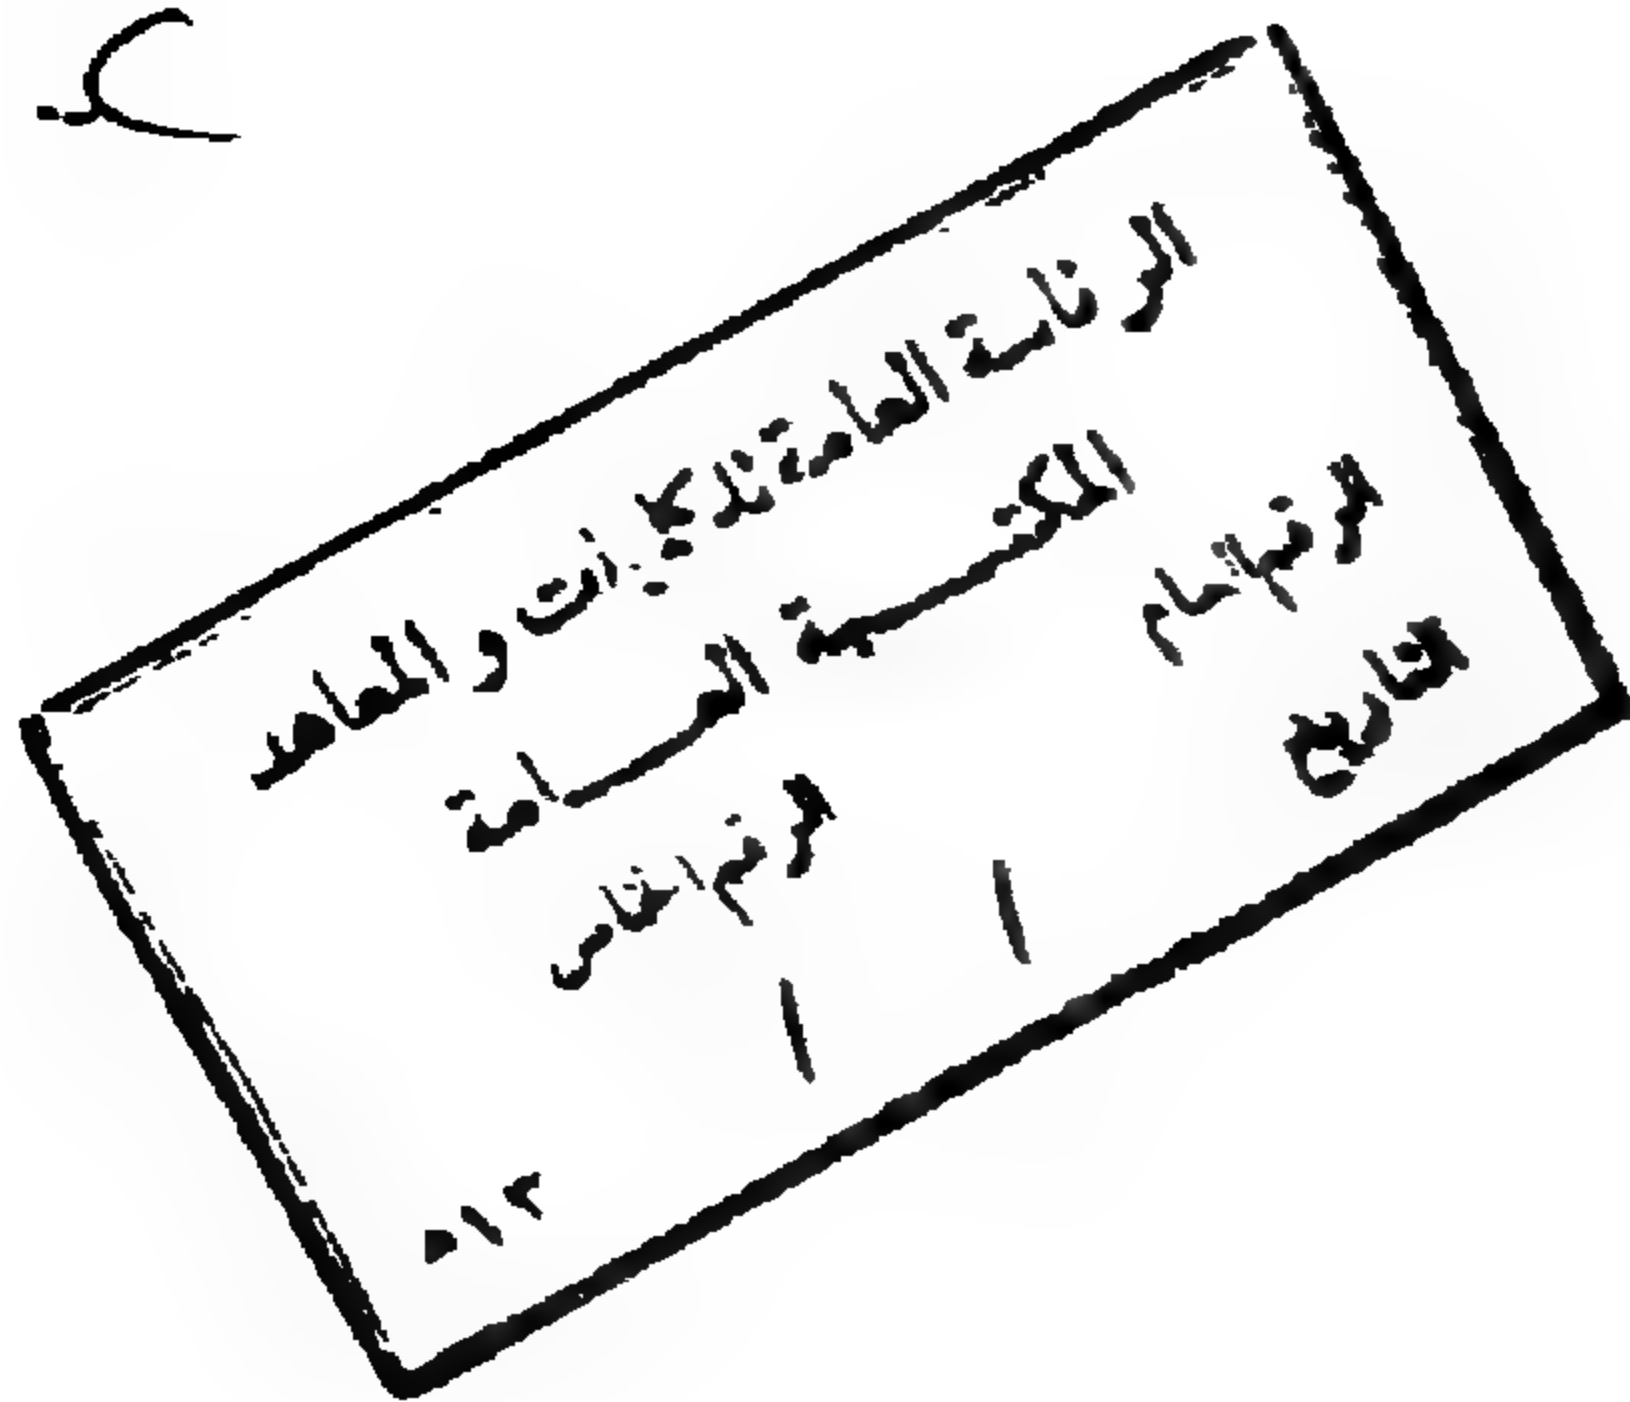 الرئاسة العامة للكليات والمعاهد
المكتبة العامة
الرقم العام الرقم الخاص
التاريخ / / ١٣هـ